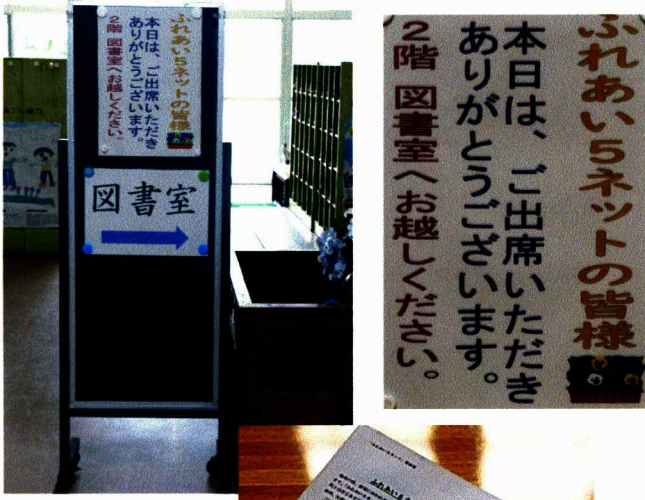 ふれあい5ネットの皆様
本日は、ご出席いただき
ありがとうございます。
2階 図書室へお越しください。
図書室
ふれあい5ネットの皆様
本日は、ご出席いただき
ありがとうございます。
2階 図書室へお越しください。